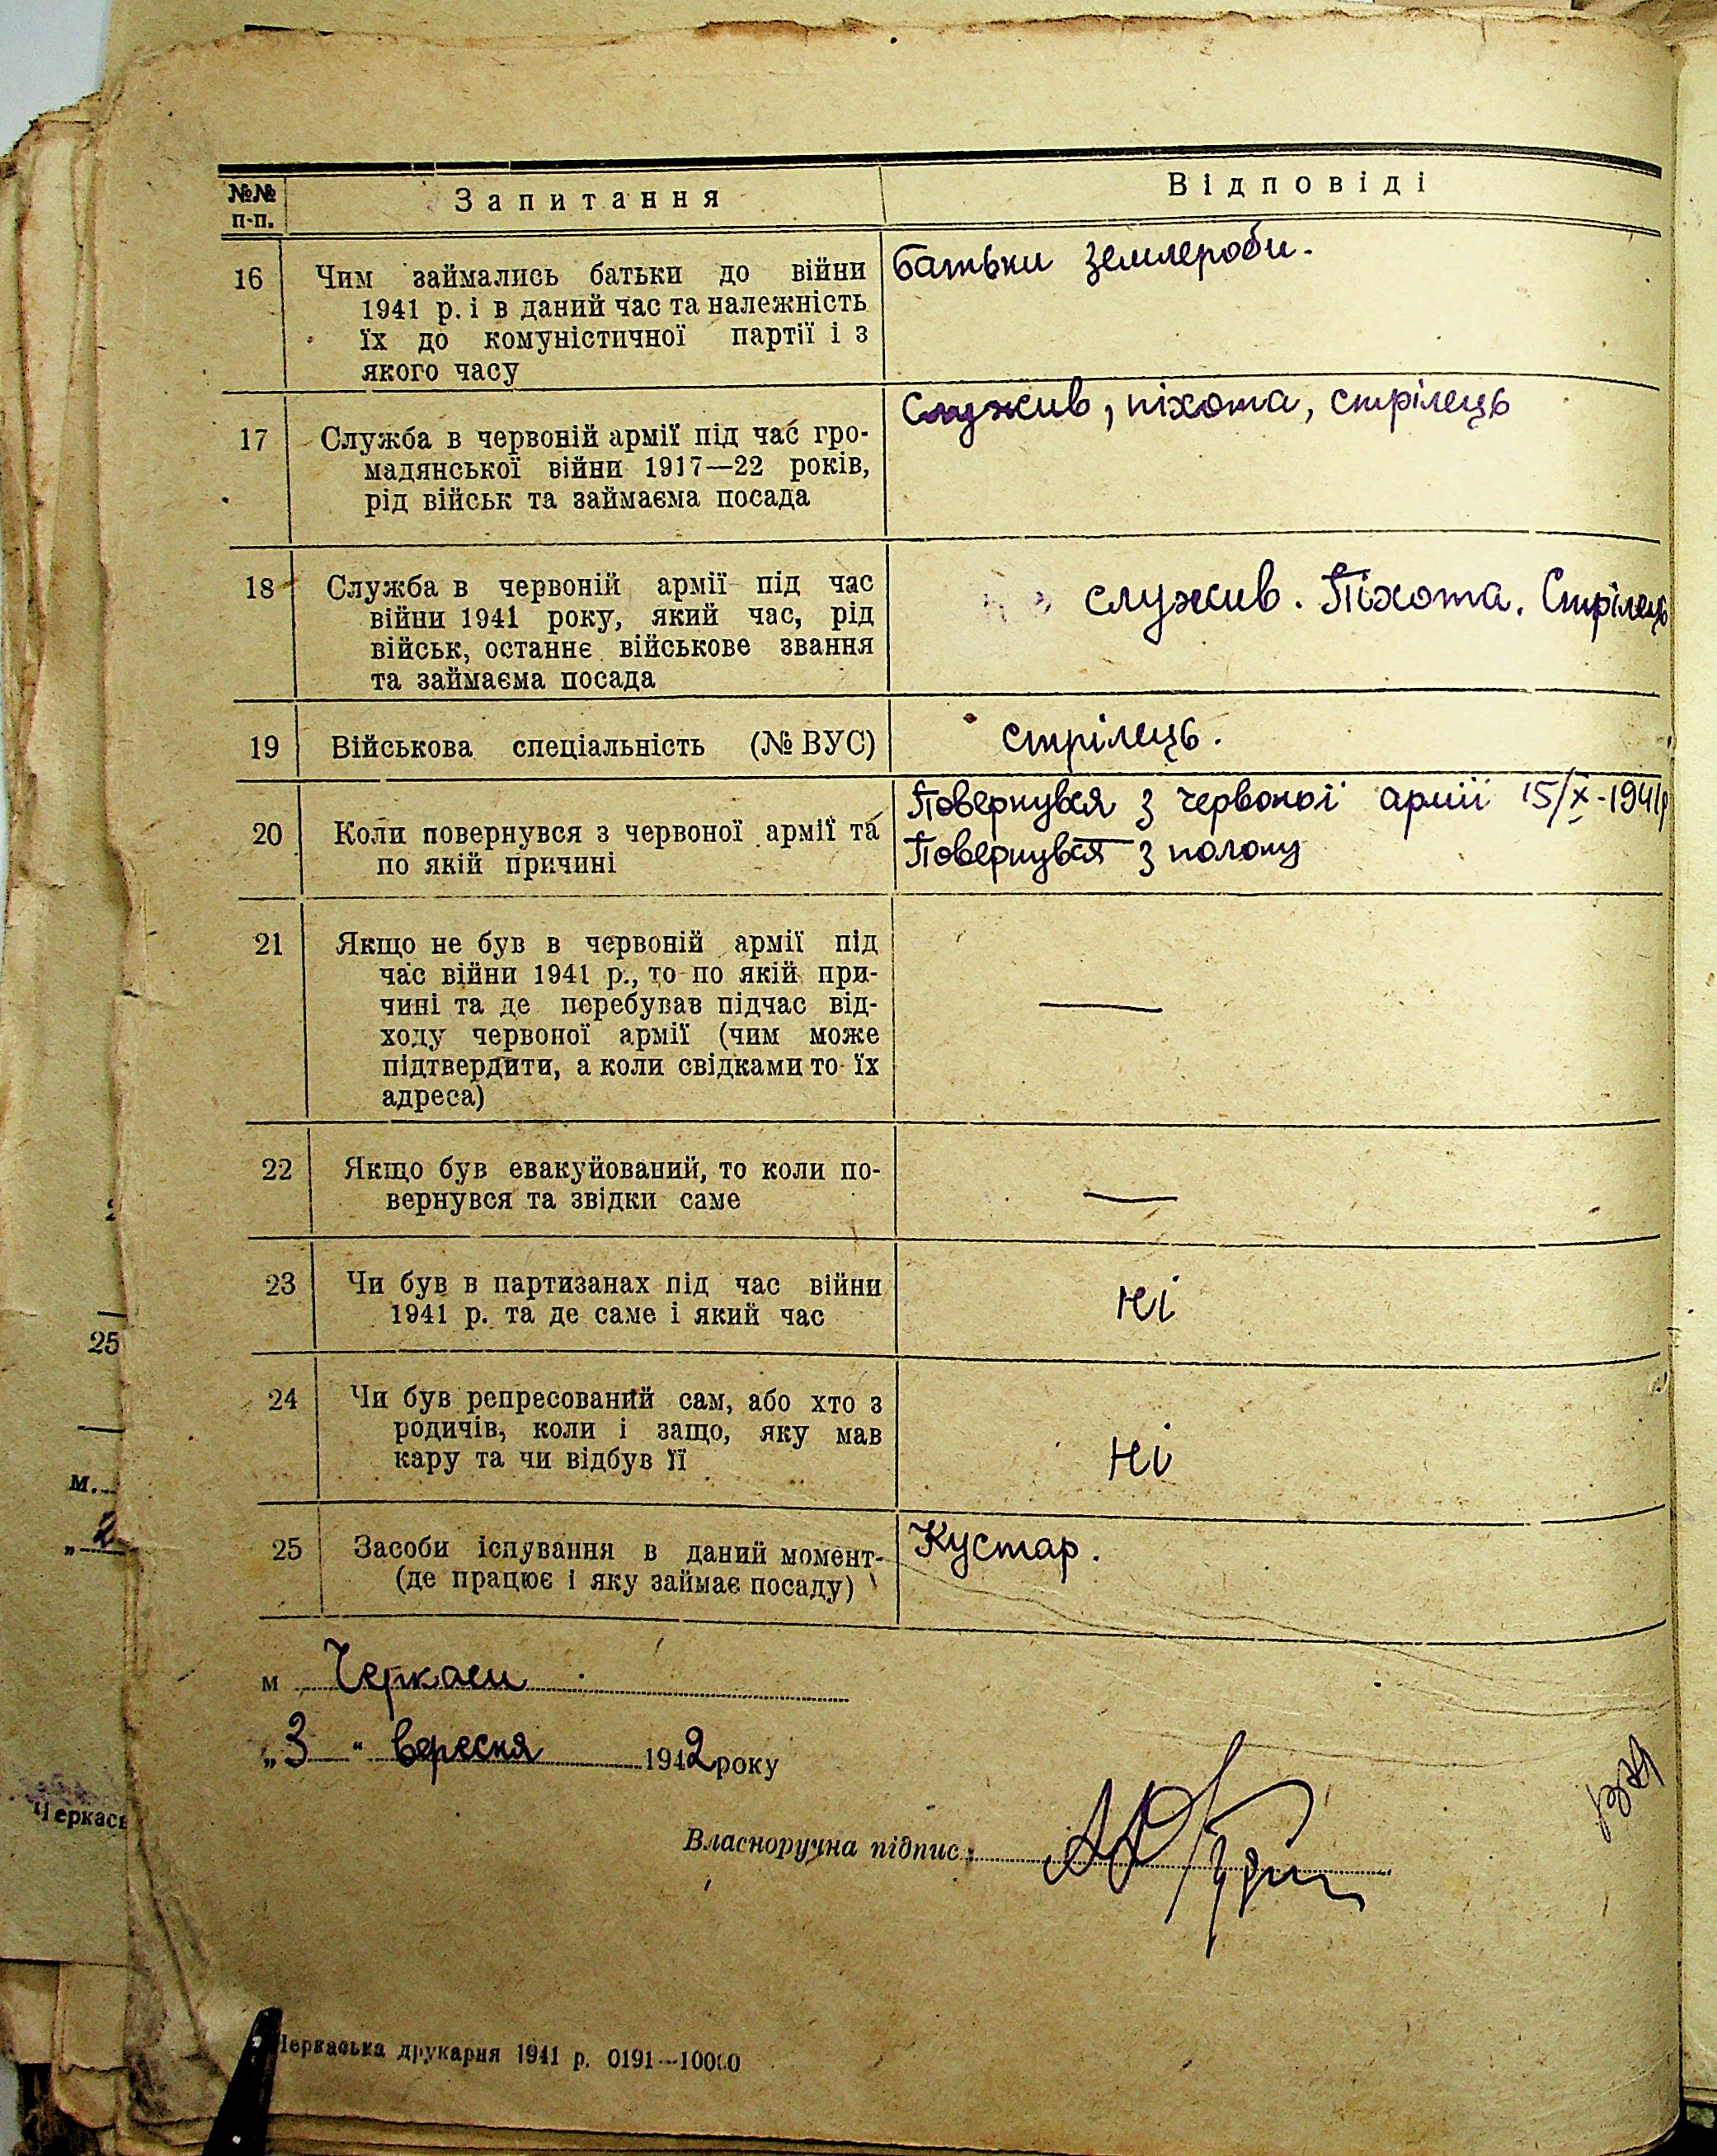 №№ п-п. Запитання Відповіді
16 Чим займались батьки до війни
1941 р. і в даний час та належність
їх до комуністичної партії і з
якого часу
батьки землероби.
17 Служба в червоній армії під час гро-
мадянської війни 1917—22 років,
рід військ та займаєма посада
Служив, піхота, стрілець
18 Служба в червоній армії під час
війни 1941 року, який час, рід
військ, останнє військове звання
та займаєма посада
служив. Піхота. Стрілець
19 Військова спеціальність (№ ВУС)
стрілець.
20 Коли повернувся з червоної армії та
по якій причині
Повернувся з червоної армії 15/X-1941р
Повернувся з полону
21 Якщо не був в червоній армії під
час війни 1941 р., то по якій при-
чині та де перебував підчас від-
ходу червоної армії (чим може
підтвердити, а коли свідками то їх
адреса)
—
22 Якщо був евакуйований, то коли по-
вернувся та звідки саме
—
23 Чи був в партизанах під час війни
1941 р. та де саме і який час
Ні
24 Чи був репресований сам, або хто з
родичів, коли і защо, яку мав
кару та чи відбув її
Ні
25 Засоби існування в даний момент
(де працює і яку займає посаду)
Кустар.
м Черкаси
„3" вересня 1942 року
Власноручна підпис:
Черкаська друкарня 1941 р. 0191—10000
25
м.
„2
Черкась